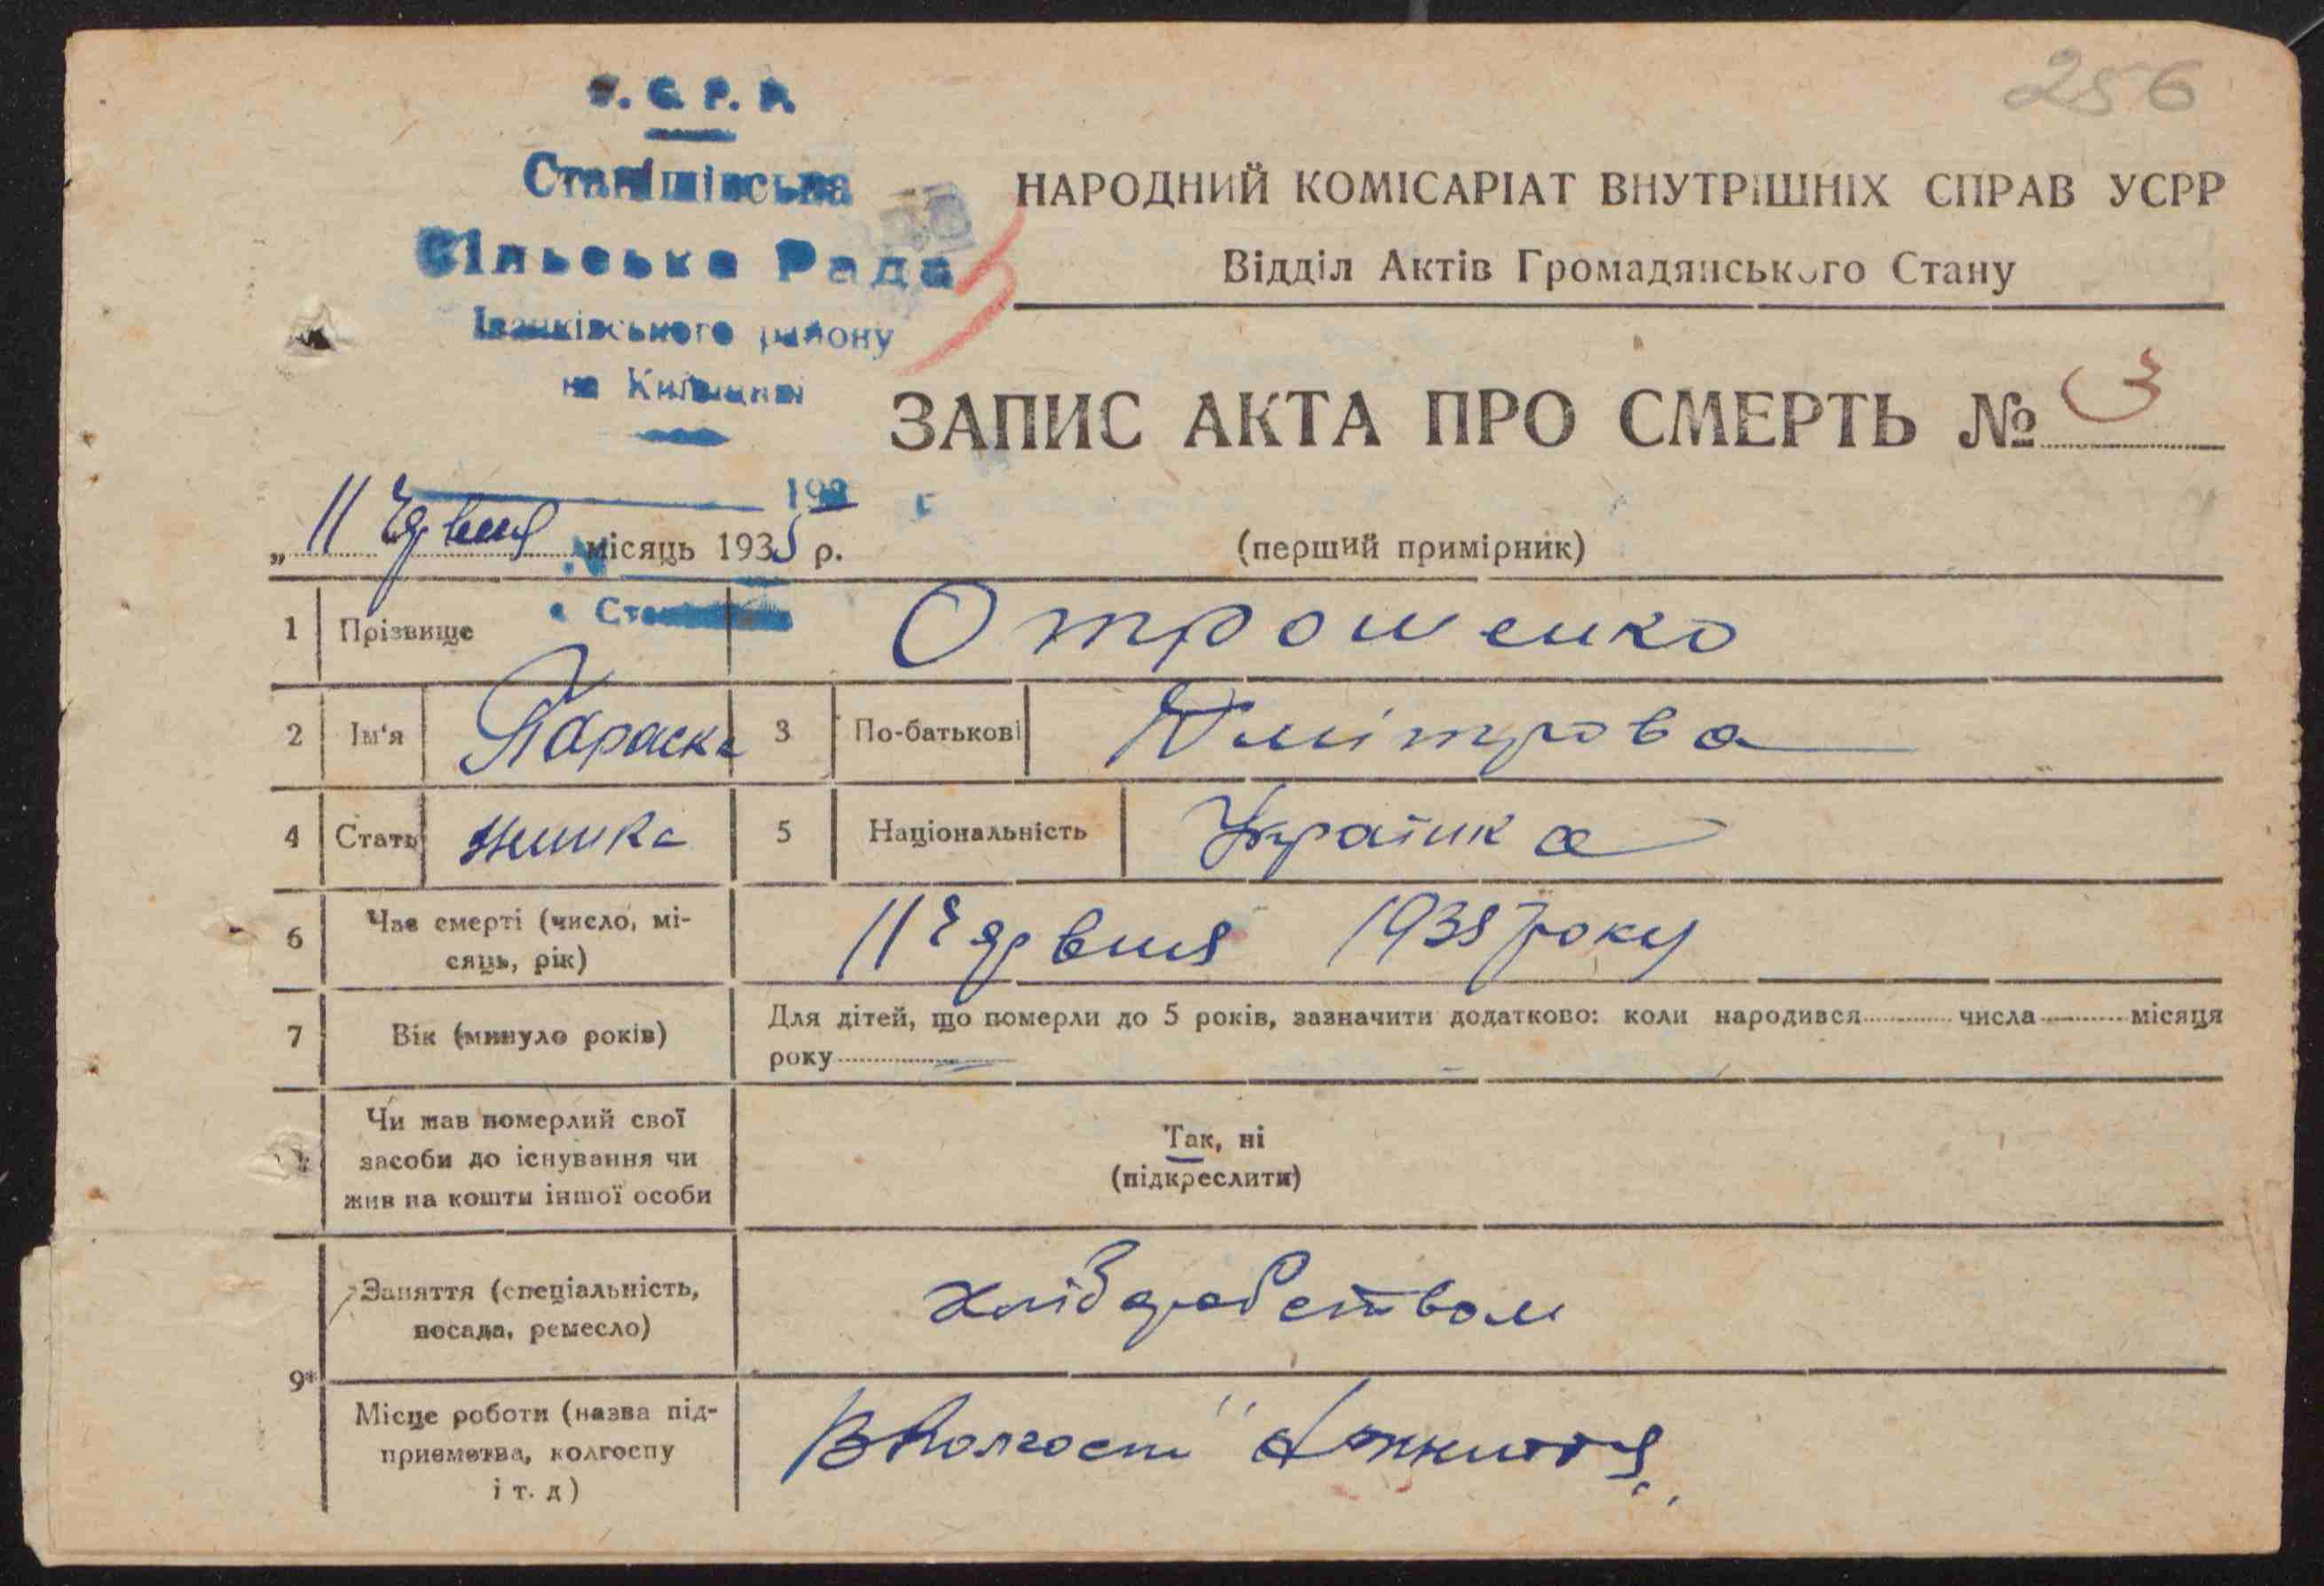 256
У. С. Р. Р.
Станішівська
Сільська Рада
Іванківського району
на Київщині
НАРОДНИЙ КОМІСАРІАТ ВНУТРІШНІХ СПРАВ УСРР
Відділ Актів Громадянського Стану
ЗАПИС АКТА ПРО СМЕРТЬ № 3
192 г
„ 11 Червня місяць 1935 р.
(перший примірник)
1 Прізвище Отрошенко
2 Ім'я Параска 3 По-батькові Дмітрова
4 Стать жинка 5 Національність Українка
6 Час смерті (число, мі-
сяць, рік) 11 Червня 1935 року
7 Вік (минуло років) Для дітей, що померли до 5 років, зазначити додатково: коли народився числа місяця
року
Чи мав померлий свої
засоби до існування чи
жив на кошти іншої особи
Так, ні
(підкреслити)
9* Заняття (спеціальність,
посада, ремесло) хлібаробством
Місце роботи (назва під-
приємства, колгоспу
і т. д) В Колгоспі